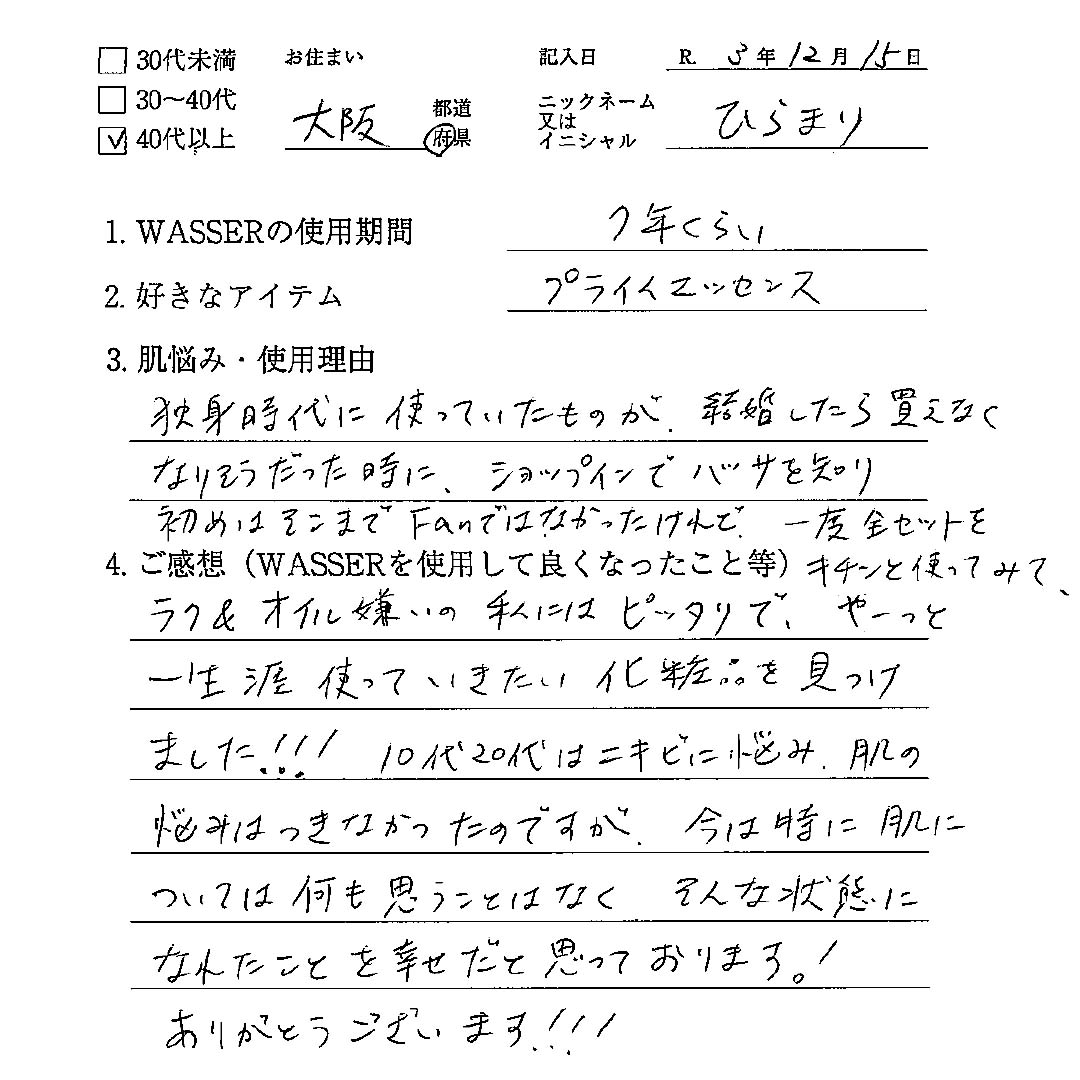 30代未満 お住まい 記入日 R. 3年12月15日
30〜40代 大阪 都道府県 ニックネーム又はイニシャル ひらまり
40代以上
1. WASSERの使用期間 7年くらい
2. 好きなアイテム プライムエッセンス
3. 肌悩み・使用理由
独身時代に使っていたものが、結婚したら買えなく
なりそうだった時に、ショップインでバッサを知り
初めはそこまでFanではなかったけれど、一度全セットを
4. ご感想（WASSERを使用して良くなったこと等）キチンと使ってみて、
ラク&オイル嫌いの私にはピッタリで、やーっと
一生涯使っていきたい化粧品を見つけ
ました!!! 10代20代はニキビに悩み、肌の
悩みはつきなかったのですが、今は特に肌に
ついては何も思うことはなく そんな状態に
なれたことを幸せだと思っております。!
ありがとうございます!!!